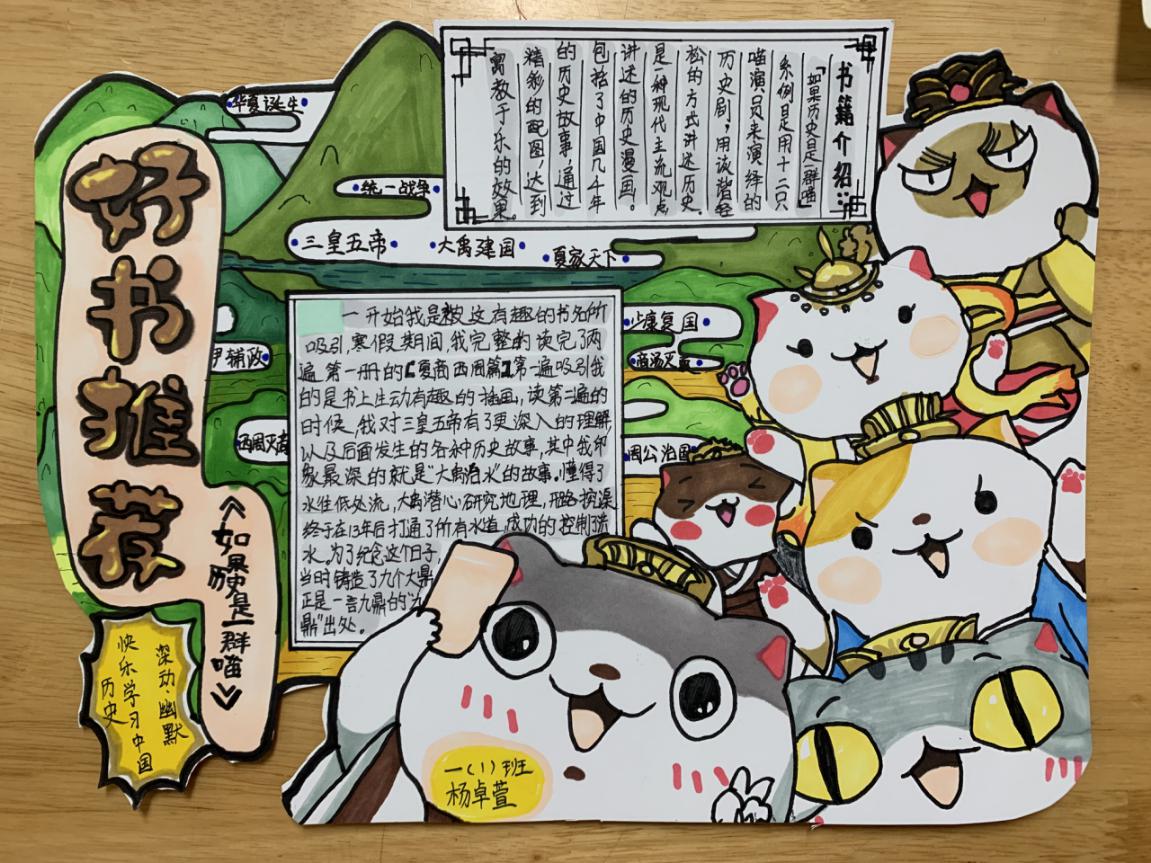 好书推荐
《如果历史是一群喵》
深动·幽默
快乐学习中国
历史
书籍介绍：
「如果历史是一群喵」
系例是用十二只
喵演员来演绎的
历史剧；用诙谐轻
松的方式讲述历史。
是一种现代主流观点
讲述的历史漫画。
包括了中国几千年
的历史故事，通过
精彩的配图，达到
寓教于乐的效果。
华夏诞生
统一战争
三皇五帝 大禹建国 夏家天下
少康复国
商汤灭夏
尹辅政
西周灭商
周公治国
一开始我是被这有趣的书名所
吸引，寒假期间，我完整的读完了两
遍第一册的【夏商西周篇】第一遍吸引我
的是书上生动有趣的插画，读第二遍的
时候，我对三皇五帝有了更深入的理解
以及后面发生的各种历史故事，其中我印
象最深的就是"大禹治水"的故事。懂得了
水往低处流，大禹潜心研究地理，挖渠
终于在13年后打通了所有水道，成功的控制了洪
水。为了纪念这个日子，
当时铸造了九个大鼎
正是一言九鼎的"九
鼎"出处。
一(1)班
杨卓萱